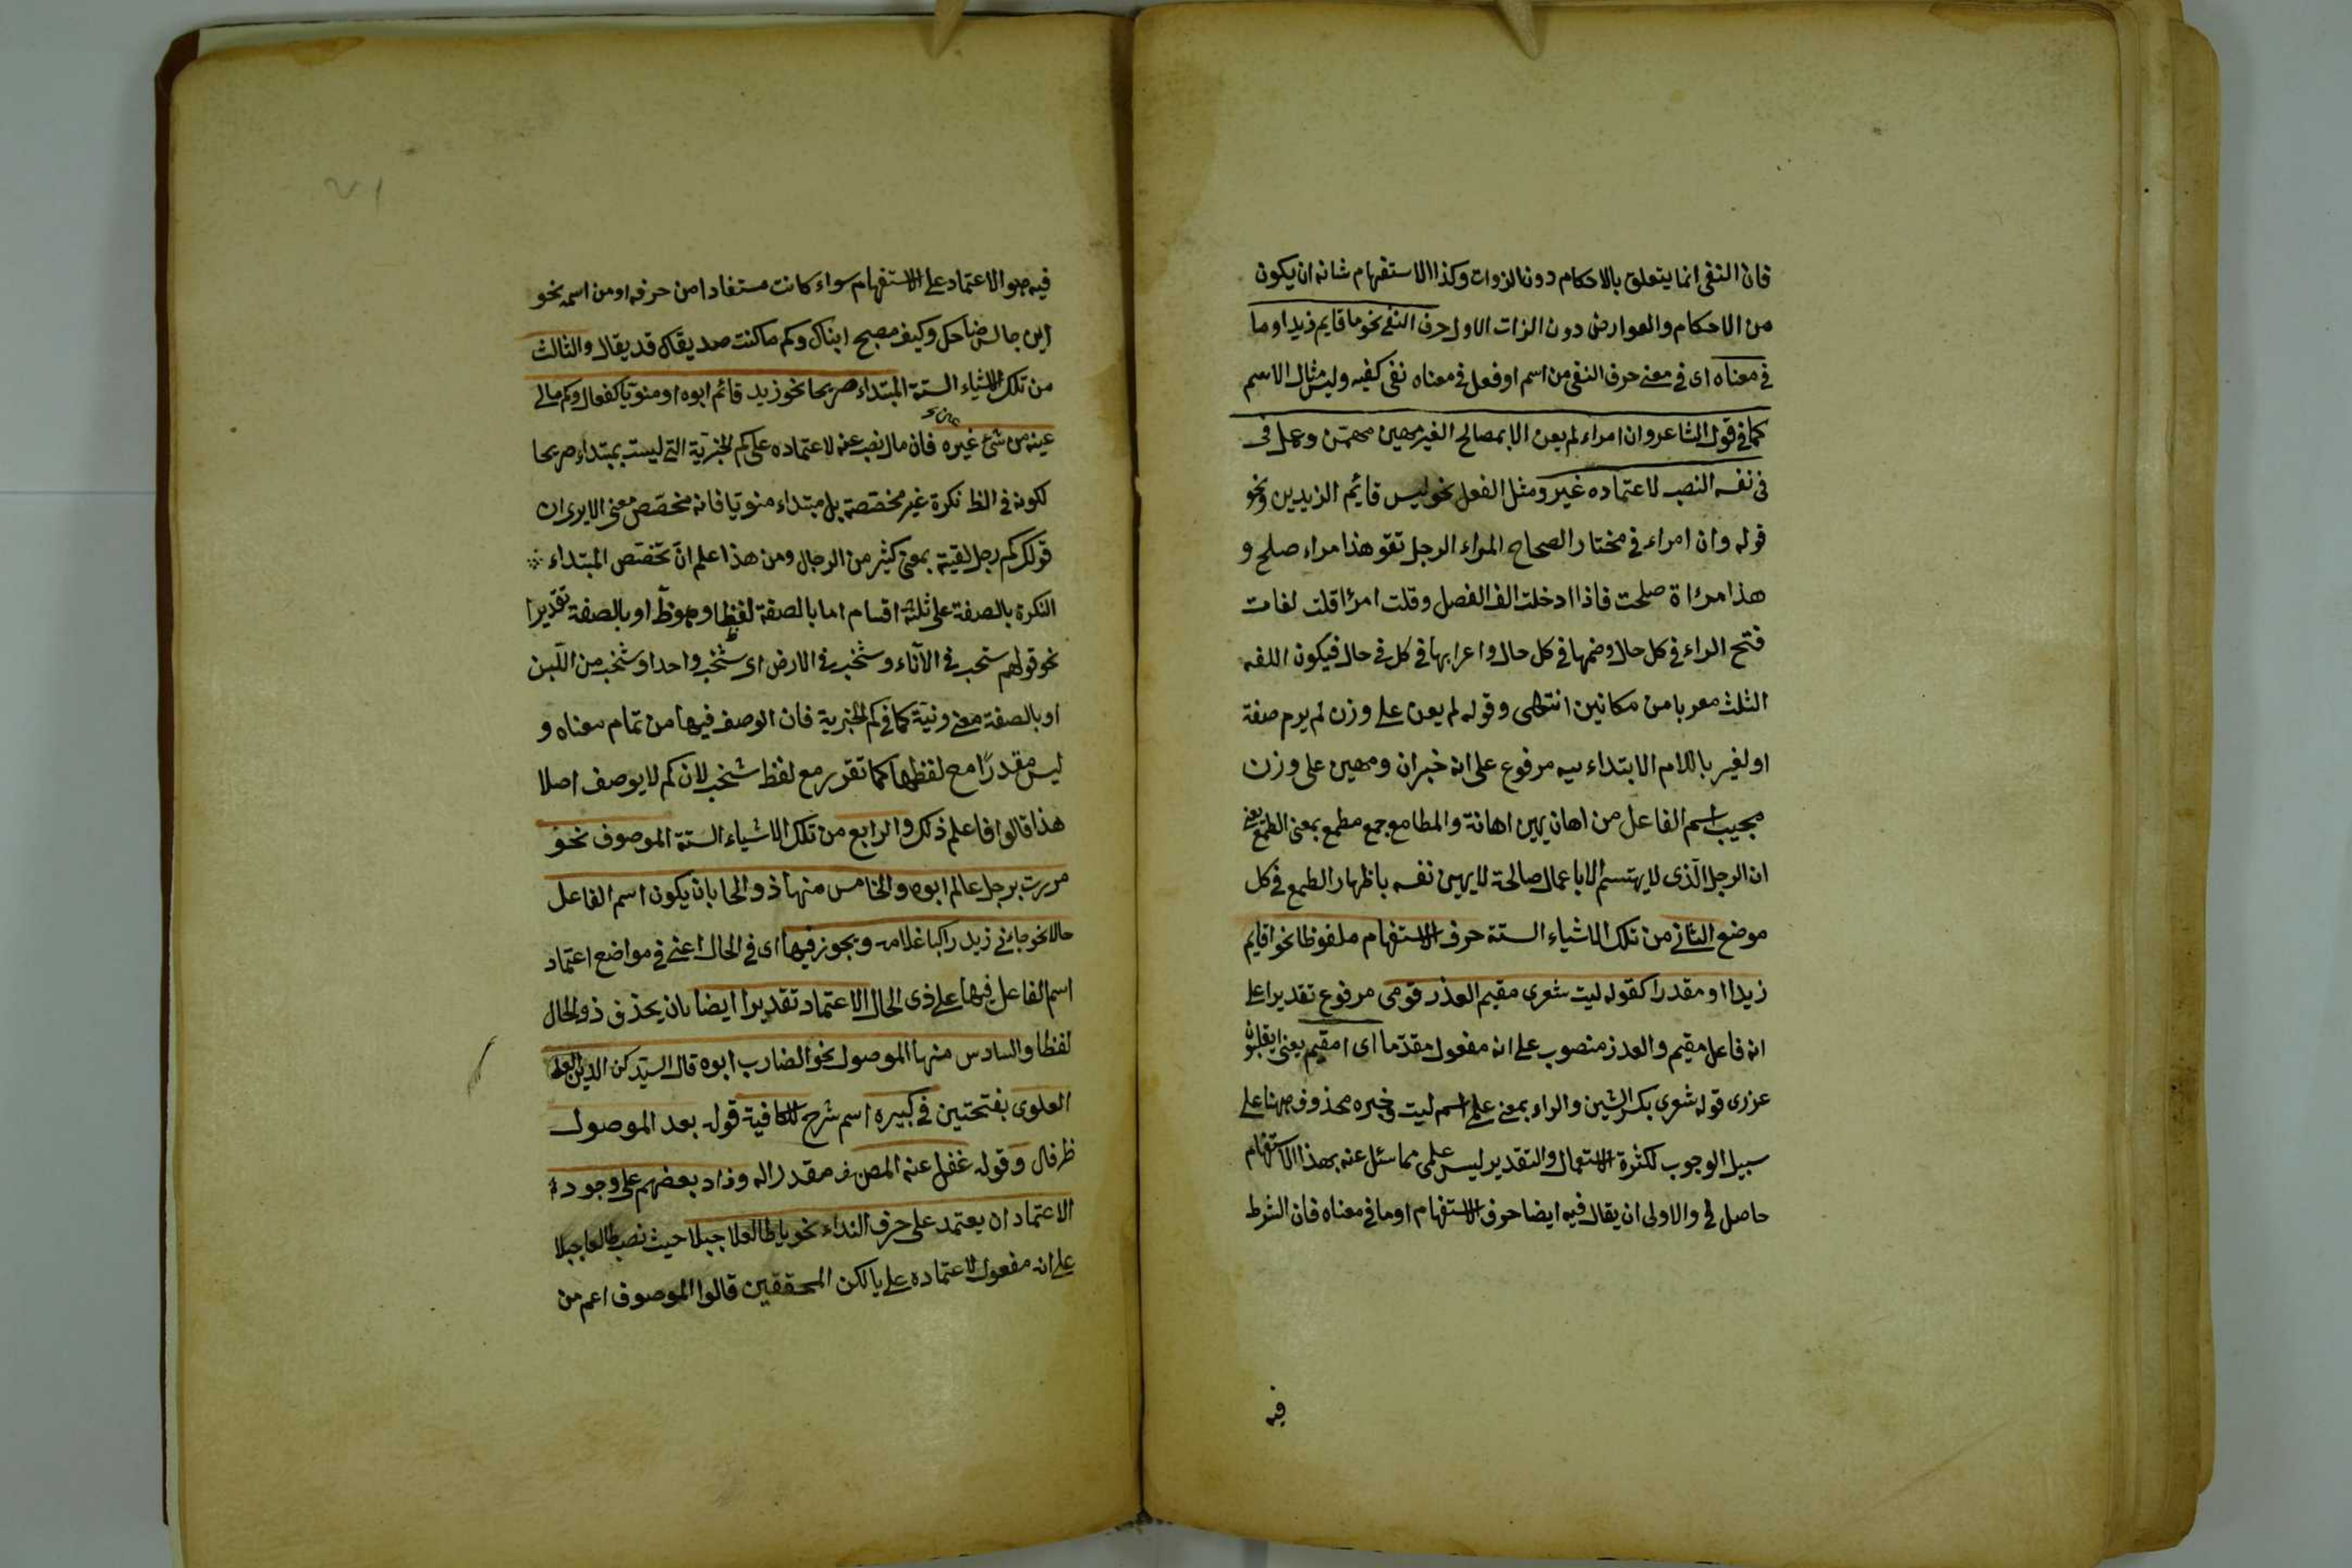 فان النفى انما يتعلق بالاحكام دون الذوات وكذا الاستفهام شانه ان يكون
من الاحكام والعوارض دون الذات الاول حرف النفى نحو ما قايم زيد او ما
فى معناه اى فى معنى حرف النفى من اسم او فعل فى معناه نفى كغير وليس مثال الاسم
كما فى قول الشاعر وان امراء لم يعن الا بمصالح الغير مهين وعمل فى
فى نفسه النصب لاعتماده غير ومثل الفعل نحو ليس قائم الزيدين ونحو
قوله وان امراء فى مختار الصحاح المراء الرجل تقو هذا مراء صلح و
هذا مراة صلحت فاذا ادخلت الف الفصل وقلت امرا قلت لغات
فتح الراء فى كل حال وضمها فى كل حال واعرابها فى كل فى حال فيكون اللغه
الثلث معربا من مكانين انتهى وقوله لم يعن على وزن لم يرم صفة
او لغير باللام الابتداء مرفوع على انه خبر ان ومهين على وزن
مجيب اسم الفاعل من اهان يهين اهانة والمطامع جمع مطمع بمعنى الطمع يعنى
ان الرجل الذى لا يهتم الا باعمال صالحة لا يهين نفسه باظهار الطمع فى كل
موضع الثانى من تلك الاشياء الستة حرف الاستفهام ملفوظا نحو اقايم
زيد او مقدرا كقوله ليت شعرى مقيم العذر قومى مرفوع تقديرا على
انه فاعل مقيم والعذر منصوب على انه مفعول مقدما اى امقيم يعنى
عزرى قوله شعرى بكسر الشين والراء بمعنى علمى اسم ليت وخبره محذوف ههنا على
سبيل الوجوب لكثرة الاستعمال والتقدير ليس علمى مما سئل عنه بهذا الاستفهام
حاصل لى والاولى ان يقال فيه ايضا حرف الاستفهام او ما فى معناه فان الشرط
فيه
فيه هو الاعتماد على الاستفهام سواء كانت مستفادا من حرفه او من اسمه نحو
اين جالس ضاحك وكيف مصبح ابناك وكم ماكنت صديقاك قد يقال والثالث
من تلك الاشياء الستة المبتداء صريحا نحو زيد قائم ابوه او منويا كفعال وكم مالى
عينه من شئ غيره فان مالئ نصب عنه لاعتماده على كم الخبرية التى ليست بمبتداء صريحا
لكونه فى الظ نكرة غير مخصصة بل مبتداء منويا فانه مخصص معنى الا يرى ان
قولك كم رجل لقيته بمعنى كثير من الرجال ومن هذا علم ان تخصص المبتداء
النكرة بالصفة على ثلثة اقسام اما بالصفة لفظا وهو ظ او بالصفة تقديرا
نحو قولهم شخب فى الآناء وشخب فى الارض اى شخب واحد او شخب من اللبن
او بالصفة معنى ونية كما فى كم الخبرية فان الوصف فيها من تمام معناه و
ليس مقدرا مع لفظها كما تقرر مع لفظ شخب لان كم لا يوصف اصلا
هذا قالوا فاعلم ذلك والرابع من تلك الاشياء الستة الموصوف نحو
مررت برجل عالم ابوه والخامس منها ذو الحال بان يكون اسم الفاعل
حالا نحو جاءنى زيد راكبا غلامه ويجوز فيها اى فى الحال اعنى فى مواضع اعتماد
اسم الفاعل فيها على ذى الحال الاعتماد تقديرا ايضا بان يحذف ذو الحال
لفظا والسادس منها الموصول نحو الضارب ابوه قال السيد ركن الدين
العلوى بفتحتين فى كبيره اسم شرح للكافية قوله بعد الموصول
ظرفال وقوله غفل عنه المصنف مقدر اله وزاد بعضهم على وجوده
الاعتماد ان يعتمد على حرف النداء نحو يا طالعا جبلا حيث نصب طالعا جبلا
على انه مفعول لاعتماده على يا لكن المحققين قالوا الموصوف اعم من